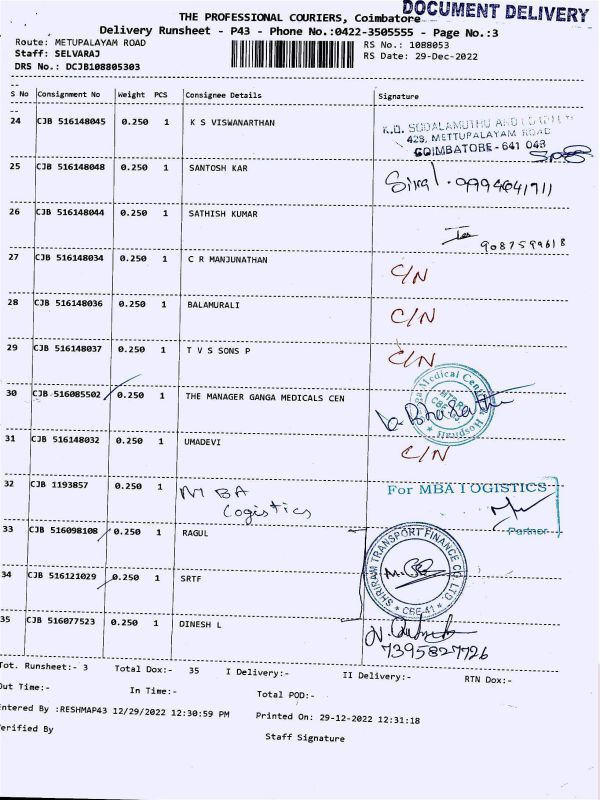 DOCUMENT DELIVERY
THE PROFESSIONAL COURIERS, Coimbatore
Delivery Runsheet - P43 - Phone No.:0422-3505555 - Page No.:3
Route: METUPALAYAM ROAD
RS No.: 1088053
Staff: SELVARAJ
RS Date: 29-Dec-2022
DRS No.: DCJB108805303
S No Consignment No Weight PCS Consignee Details Signature
24 CJB 516148045 0.250 1 K S VISWANARTHAN
K.O. SUDALAMUTHU AND
428, METTUPALAYAM ROAD
COIMBATORE - 641 043
25 CJB 516148048 0.250 1 SANTOSH KAR
9994641711
26 CJB 516148044 0.250 1 SATHISH KUMAR
9087599618
27 CJB 516148034 0.250 1 C R MANJUNATHAN
C/N
28 CJB 516148036 0.250 1 BALAMURALI
C/N
29 CJB 516148037 0.250 1 T V S SONS P
C/N
30 CJB 516085502 0.250 1 THE MANAGER GANGA MEDICALS CEN
31 CJB 516148032 0.250 1 UMADEVI
C/N
32 CJB 1193857 0.250 1 MBA Logistics
For MBA LOGISTICS
Partner
33 CJB 516098108 0.250 1 RAGUL
SHRIRAM TRANSPORT FINANCE CO. LTD.
* CBE-41 *
34 CJB 516121029 0.250 1 SRTF
35 CJB 516077523 0.250 1 DINESH L
7395827726
Tot. Runsheet:- 3 Total Dox:- 35 I Delivery:- II Delivery:- RTN Dox:-
Out Time:- In Time:- Total POD:-
Entered By :RESHMAP43 12/29/2022 12:30:59 PM Printed On: 29-12-2022 12:31:18
Verified By Staff Signature